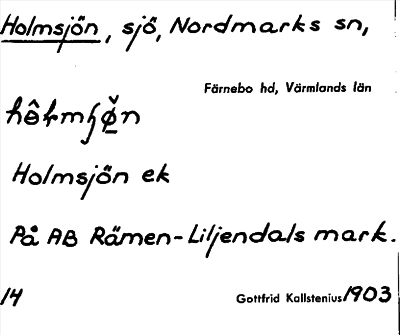 Holmsjön, sjö, Nordmarks sn,
Färnebo hd, Värmlands län
Holmsjön ek
På AB Rämen-Liljendals mark.
14 Gottfrid Kallstenius 1903